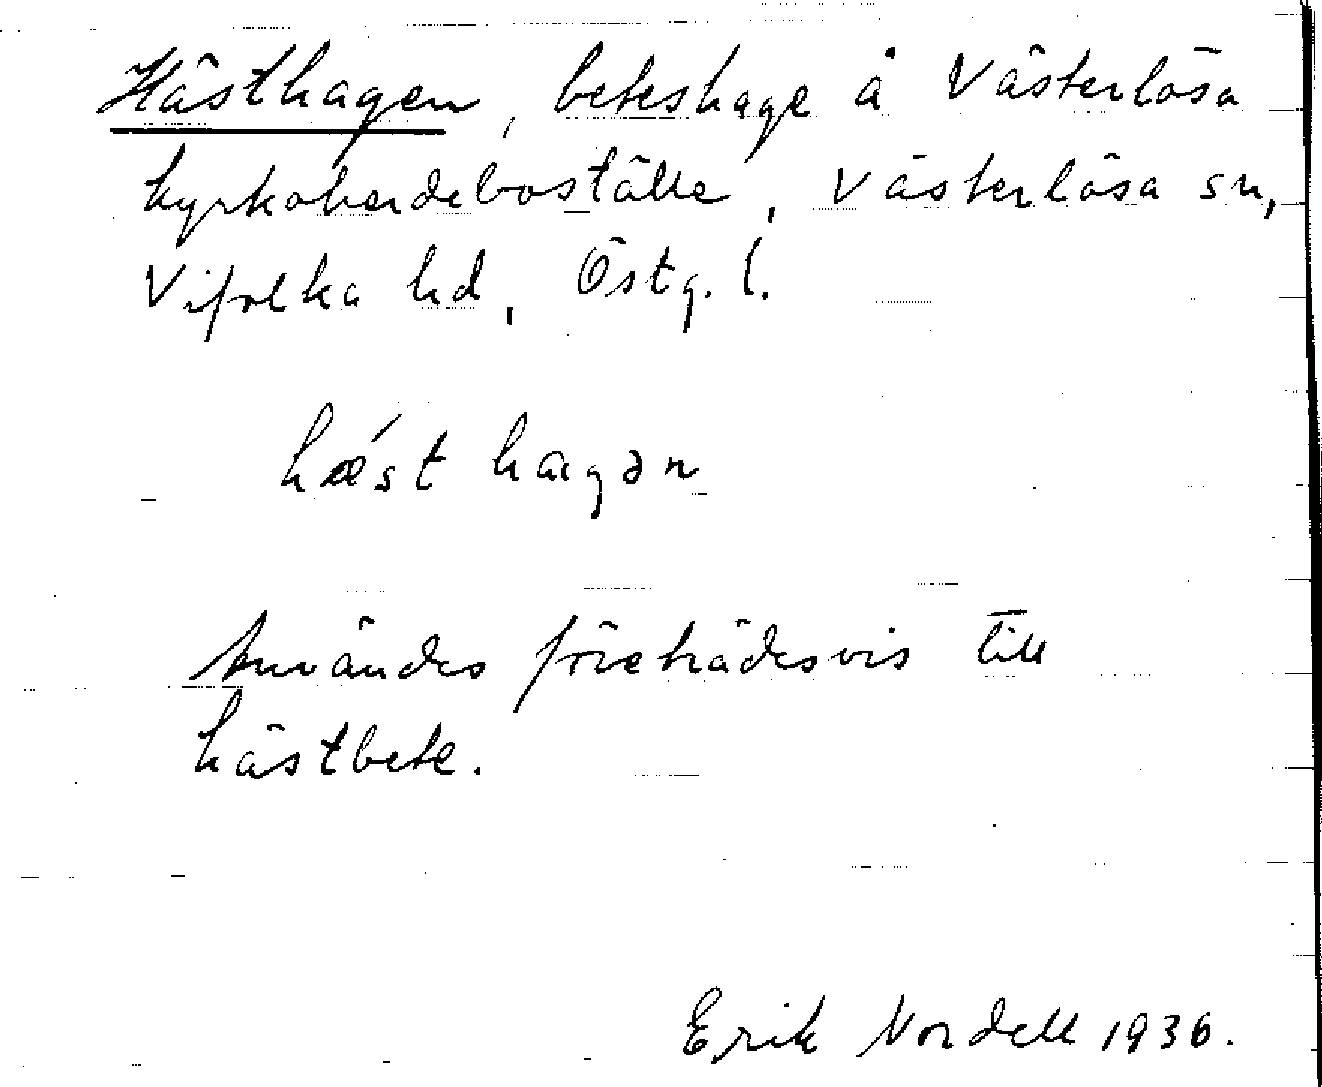 Hästhagen, beteshage å Västerlösa
kyrkoherdeboställe, Västerlösa sn,
Vifolka hd, Östg. l.
hǽst hagən
Användes företrädesvis till
hästbete.
Erik Nordell 1936.